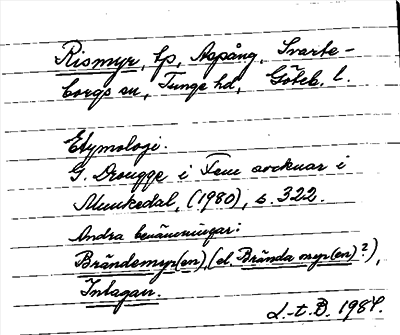 Rismyr, tp, Aspång, Svarte-
borgs sn, Tunge hd, Göteb. l.
Etymologi:
G. Drougge i Fem socknar i
Munkedal, (1980), s. 322.
Andra benämningar:
Brändemyr(en), (el. Brända myr(en)?),
Intagan.
L.-t. B. 1984.